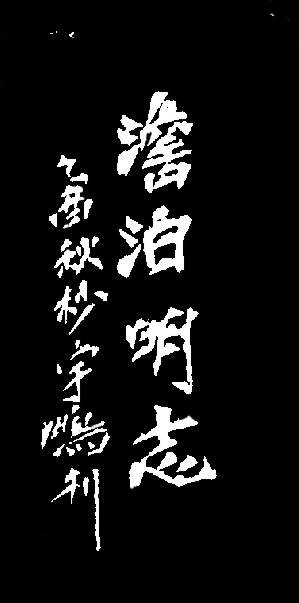 澹泊明志
乙酉秋杪宇鵬利